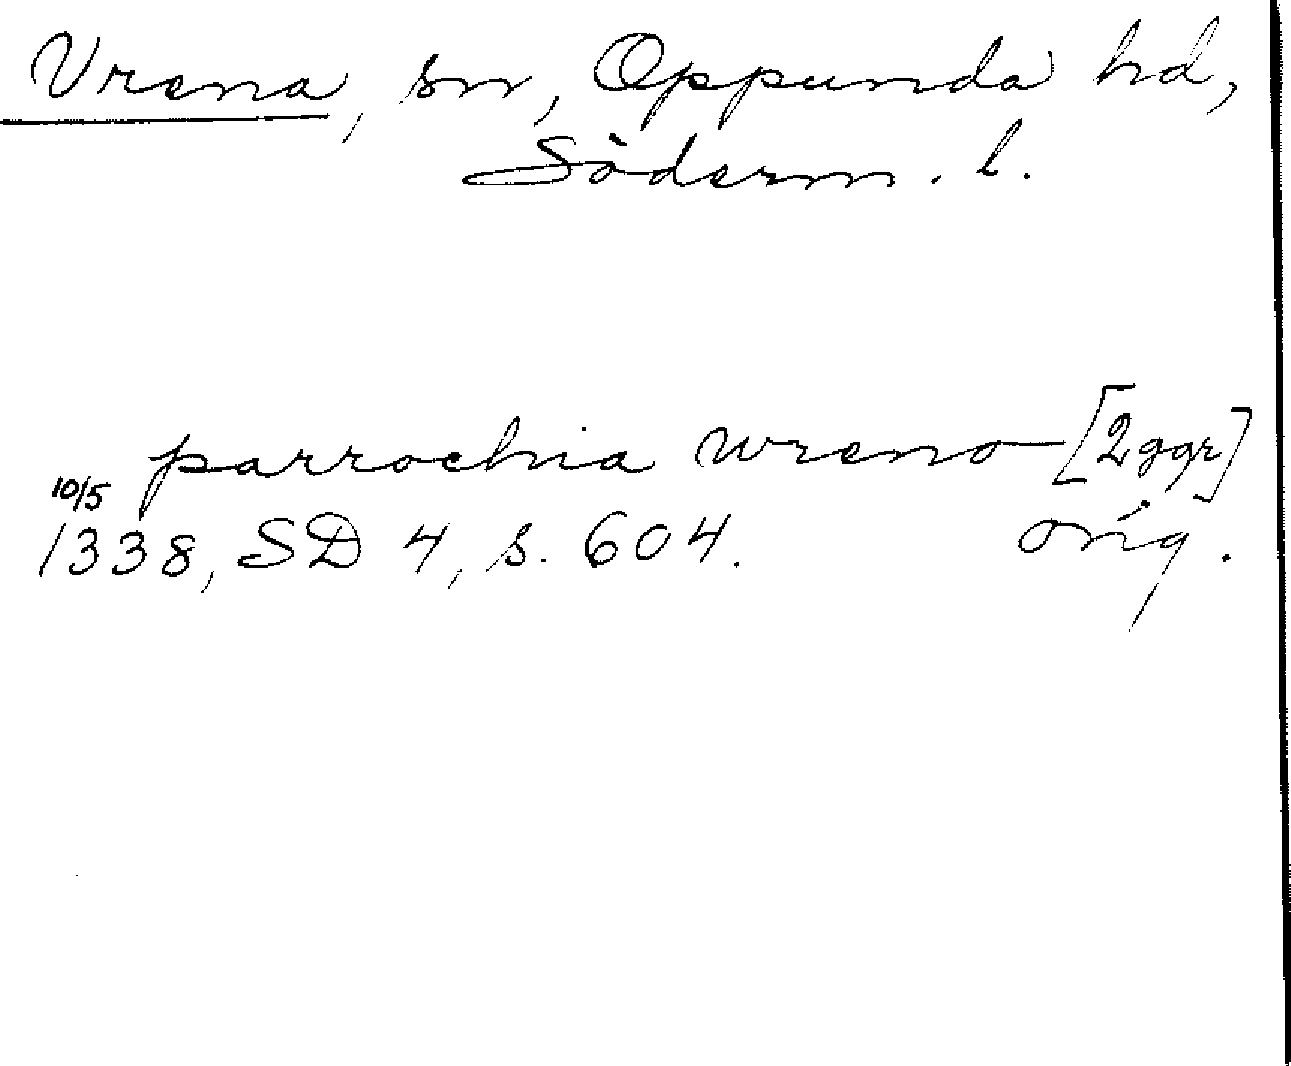 Vrena, sn, Oppunda hd,
Söderm. l.
parrochia wreno [2 ggr]
10/5
1338, SD 4, s. 604. orig.